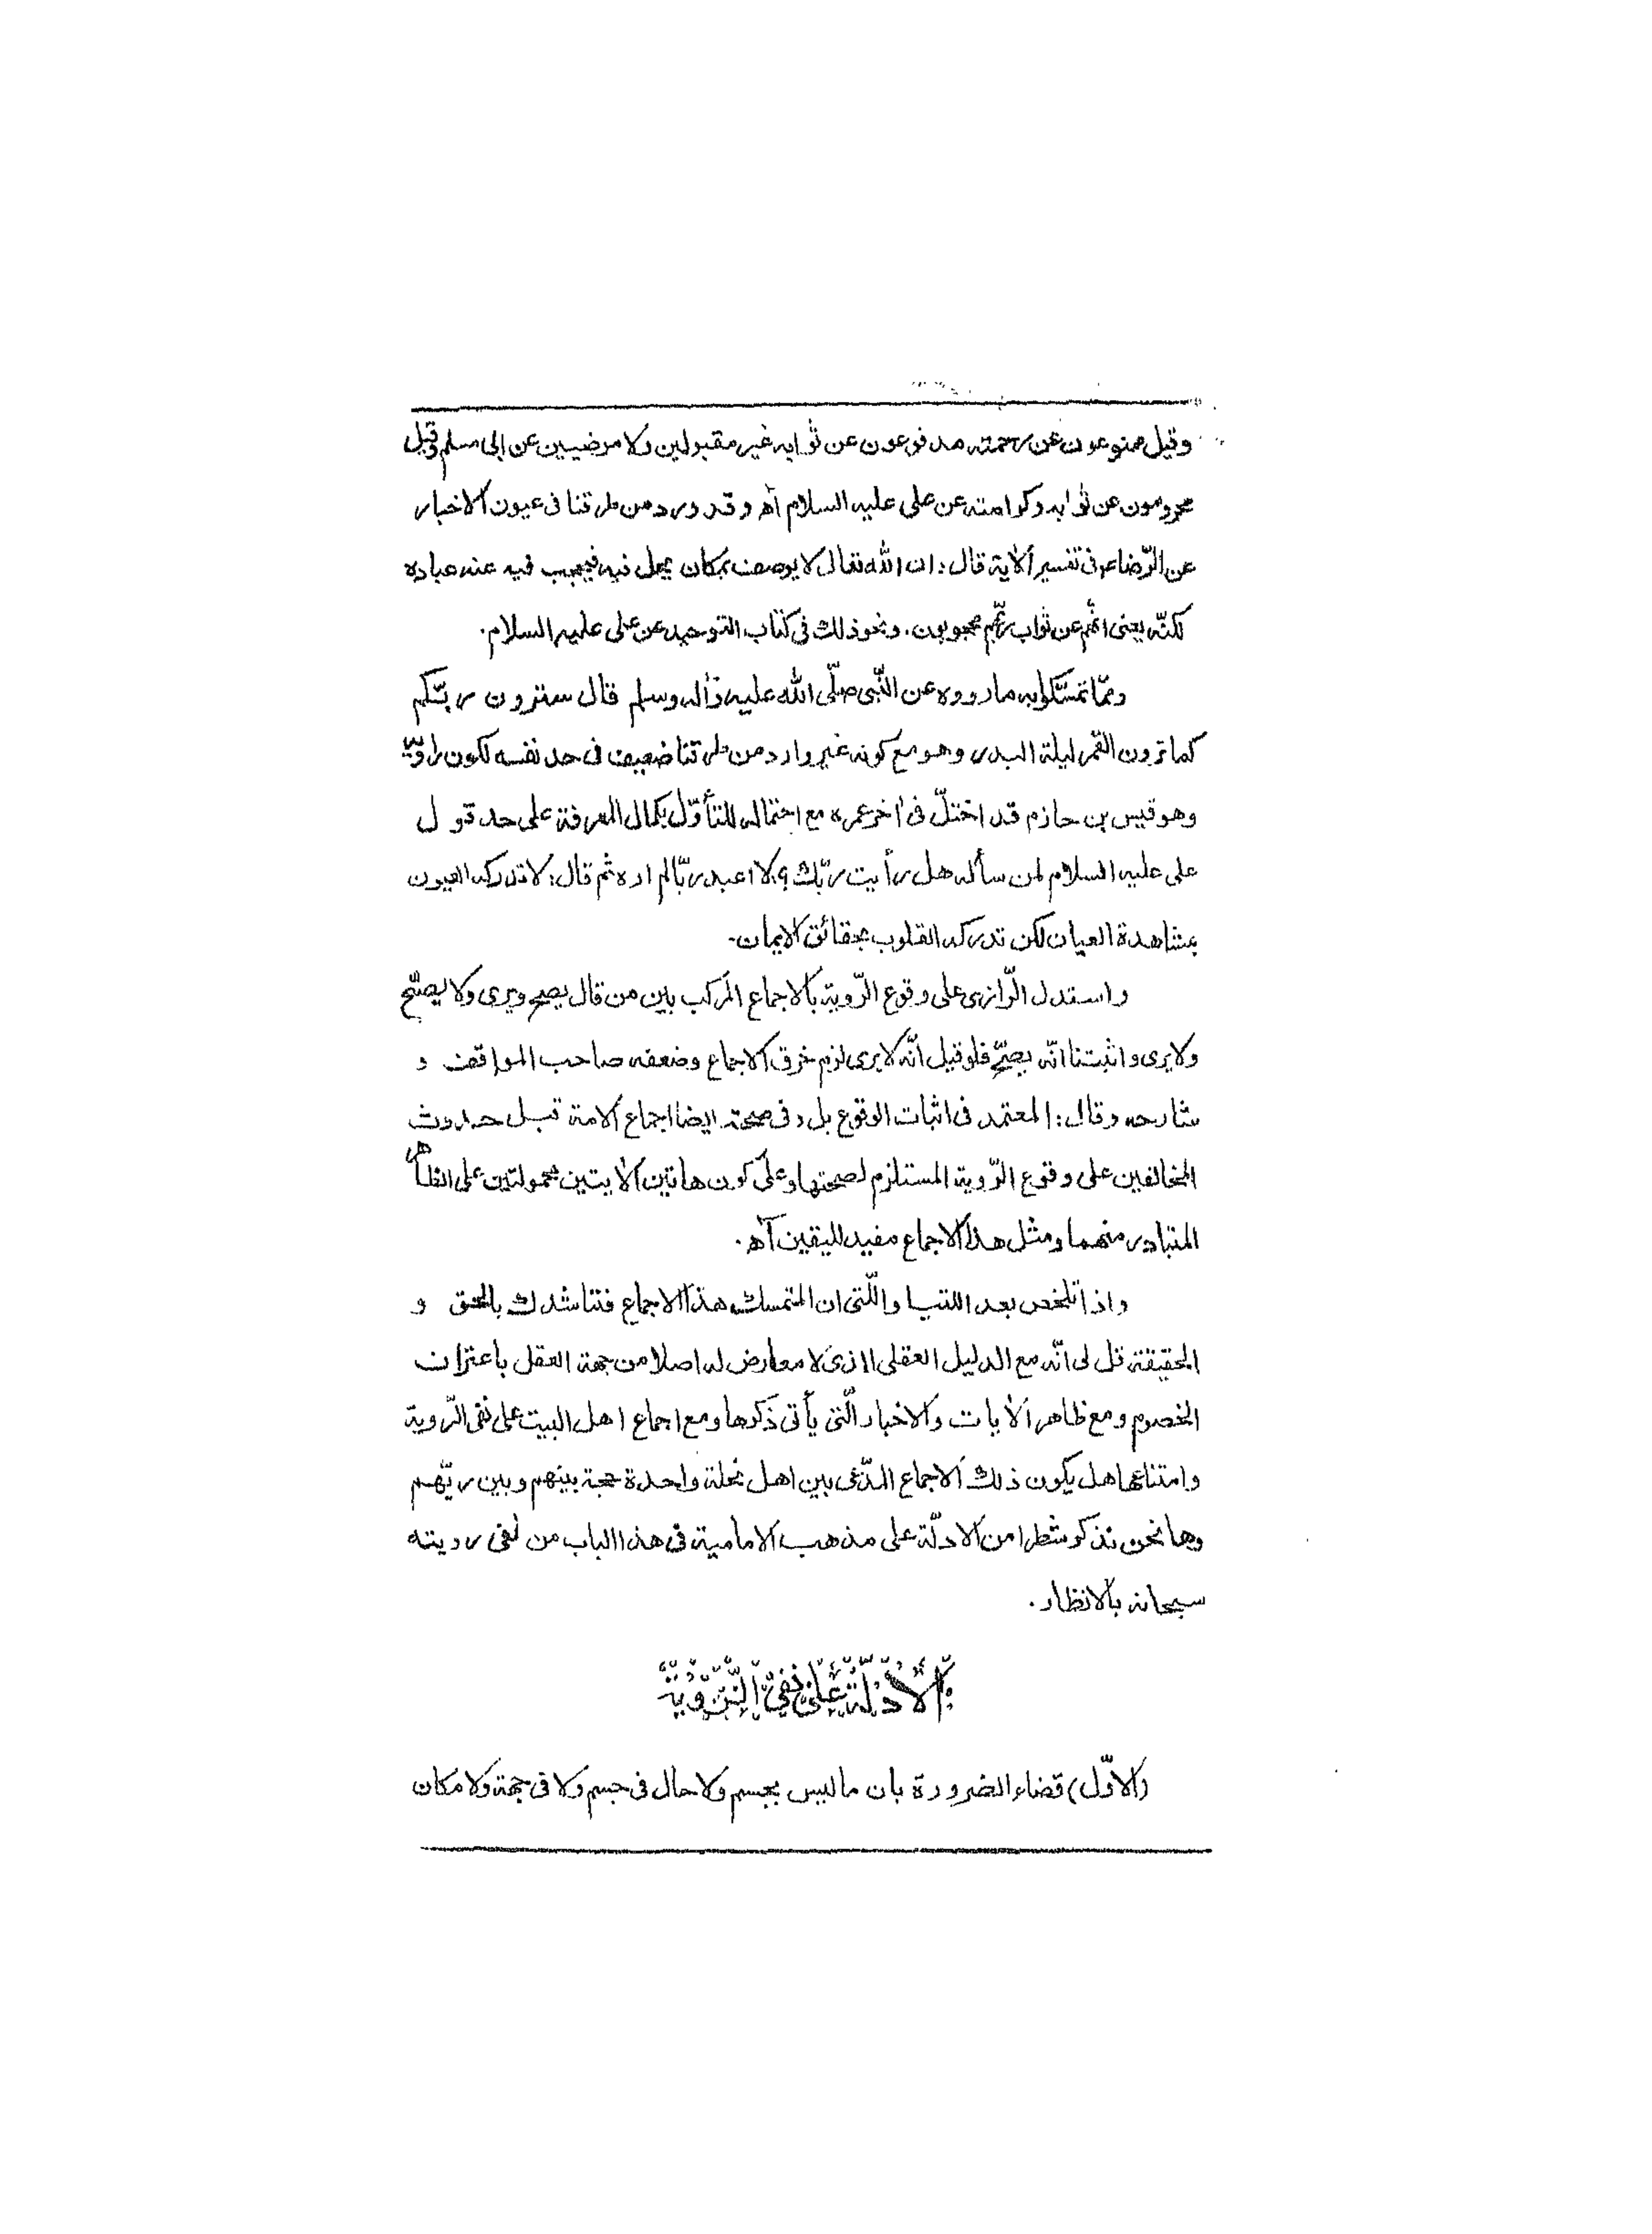 وقيل ممنوعون عن رحمته مدفوعون عن ثوابه غير مقبولين ولا مرضيين عن ابى مسلم وقيل
محرومون عن ثوابه وكرامته عن على عليه السلام اه وقد ورد من طرقنا فى عيون الاخبار
عن الرّضاء فى تفسير الاية قال: ان الله تعالى لا يوصف بمكان يحل فيه فيحجب فيه عنه عباده
لكنّه يعنى انّهم عن ثواب ربّهم محجوبون. ونحو ذلك فى كتاب التوحيد عن على عليه السلام.
وممّا تمسّكوا به ما رووه عن النّبى صلّى الله عليه واٰله وسلم قال سترون ربّكم
كما ترون القمر ليلة البدر وهو مع كونه غير وارد من طرقنا ضعيف فى حد نفسه لكون راويّه
وهو قيس بن حازم قد اختلّ فى اٰخر عمره مع احتماله للتأوّل بكمال المعرفة على حد قول
على عليه السلام لمن سأله هل رأيت ربّك ؟ لا اعبد ربّا لم اره ثم قال: لا تدركه العيون
بمشاهدة العيان لكن تدركه القلوب بحقائق الايمان-
واستدل الرّازى على وقوع الرّوية بالاجماع المركب بين من قال يصح ويرى ولا يصحّ
ولا يرى واثبتنا انّه يصحّ فلو قيل انّه لا يرى لزم خرق الاجماع وضعفه صاحب المواقف و
شارحه وقال: المعتمد فى اثبات الوقوع بل وفى صحته ايضا اجماع الامة قبل حدوث
المخالفين على وقوع الرّوية المستلزم لصحتها وعلى كون هاتين الايتين محمولتين على الظاهر
المتبادر منهما ومثل هذا الاجماع مفيد لليقين اٰه.
واذا تلخص بعد اللتيا واللّتى ان المتمسك هذا الاجماع فتناشدك بالحق و
الحقيقة قل لى انّه مع الدليل العقلى الذى لا معارض له اصلا من جهة العقل باعتراف
الخصوم ومع ظاهر الاٰيات والاخبار الّتى يأتى ذكرها ومع اجماع اهل البيت على نفى الرّوية
وامتناعها هل يكون ذلك الاجماع المدّعى بين اهل نحلة واحدة حجة بينهم وبين ربّهم
وها نحن نذكر شطرا من الادلّة على مذهب الامامية فى هذا الباب من نفى رويته
سبحانه بالانظار.
اَلْاَدِلَّةُ عَلٰى نَفْىِ الرُّوْيَةِ
(الاوّل) قضاء الضرورة بان ما ليس بجسم ولا حال فى جسم ولا فى جهة ولا مكان